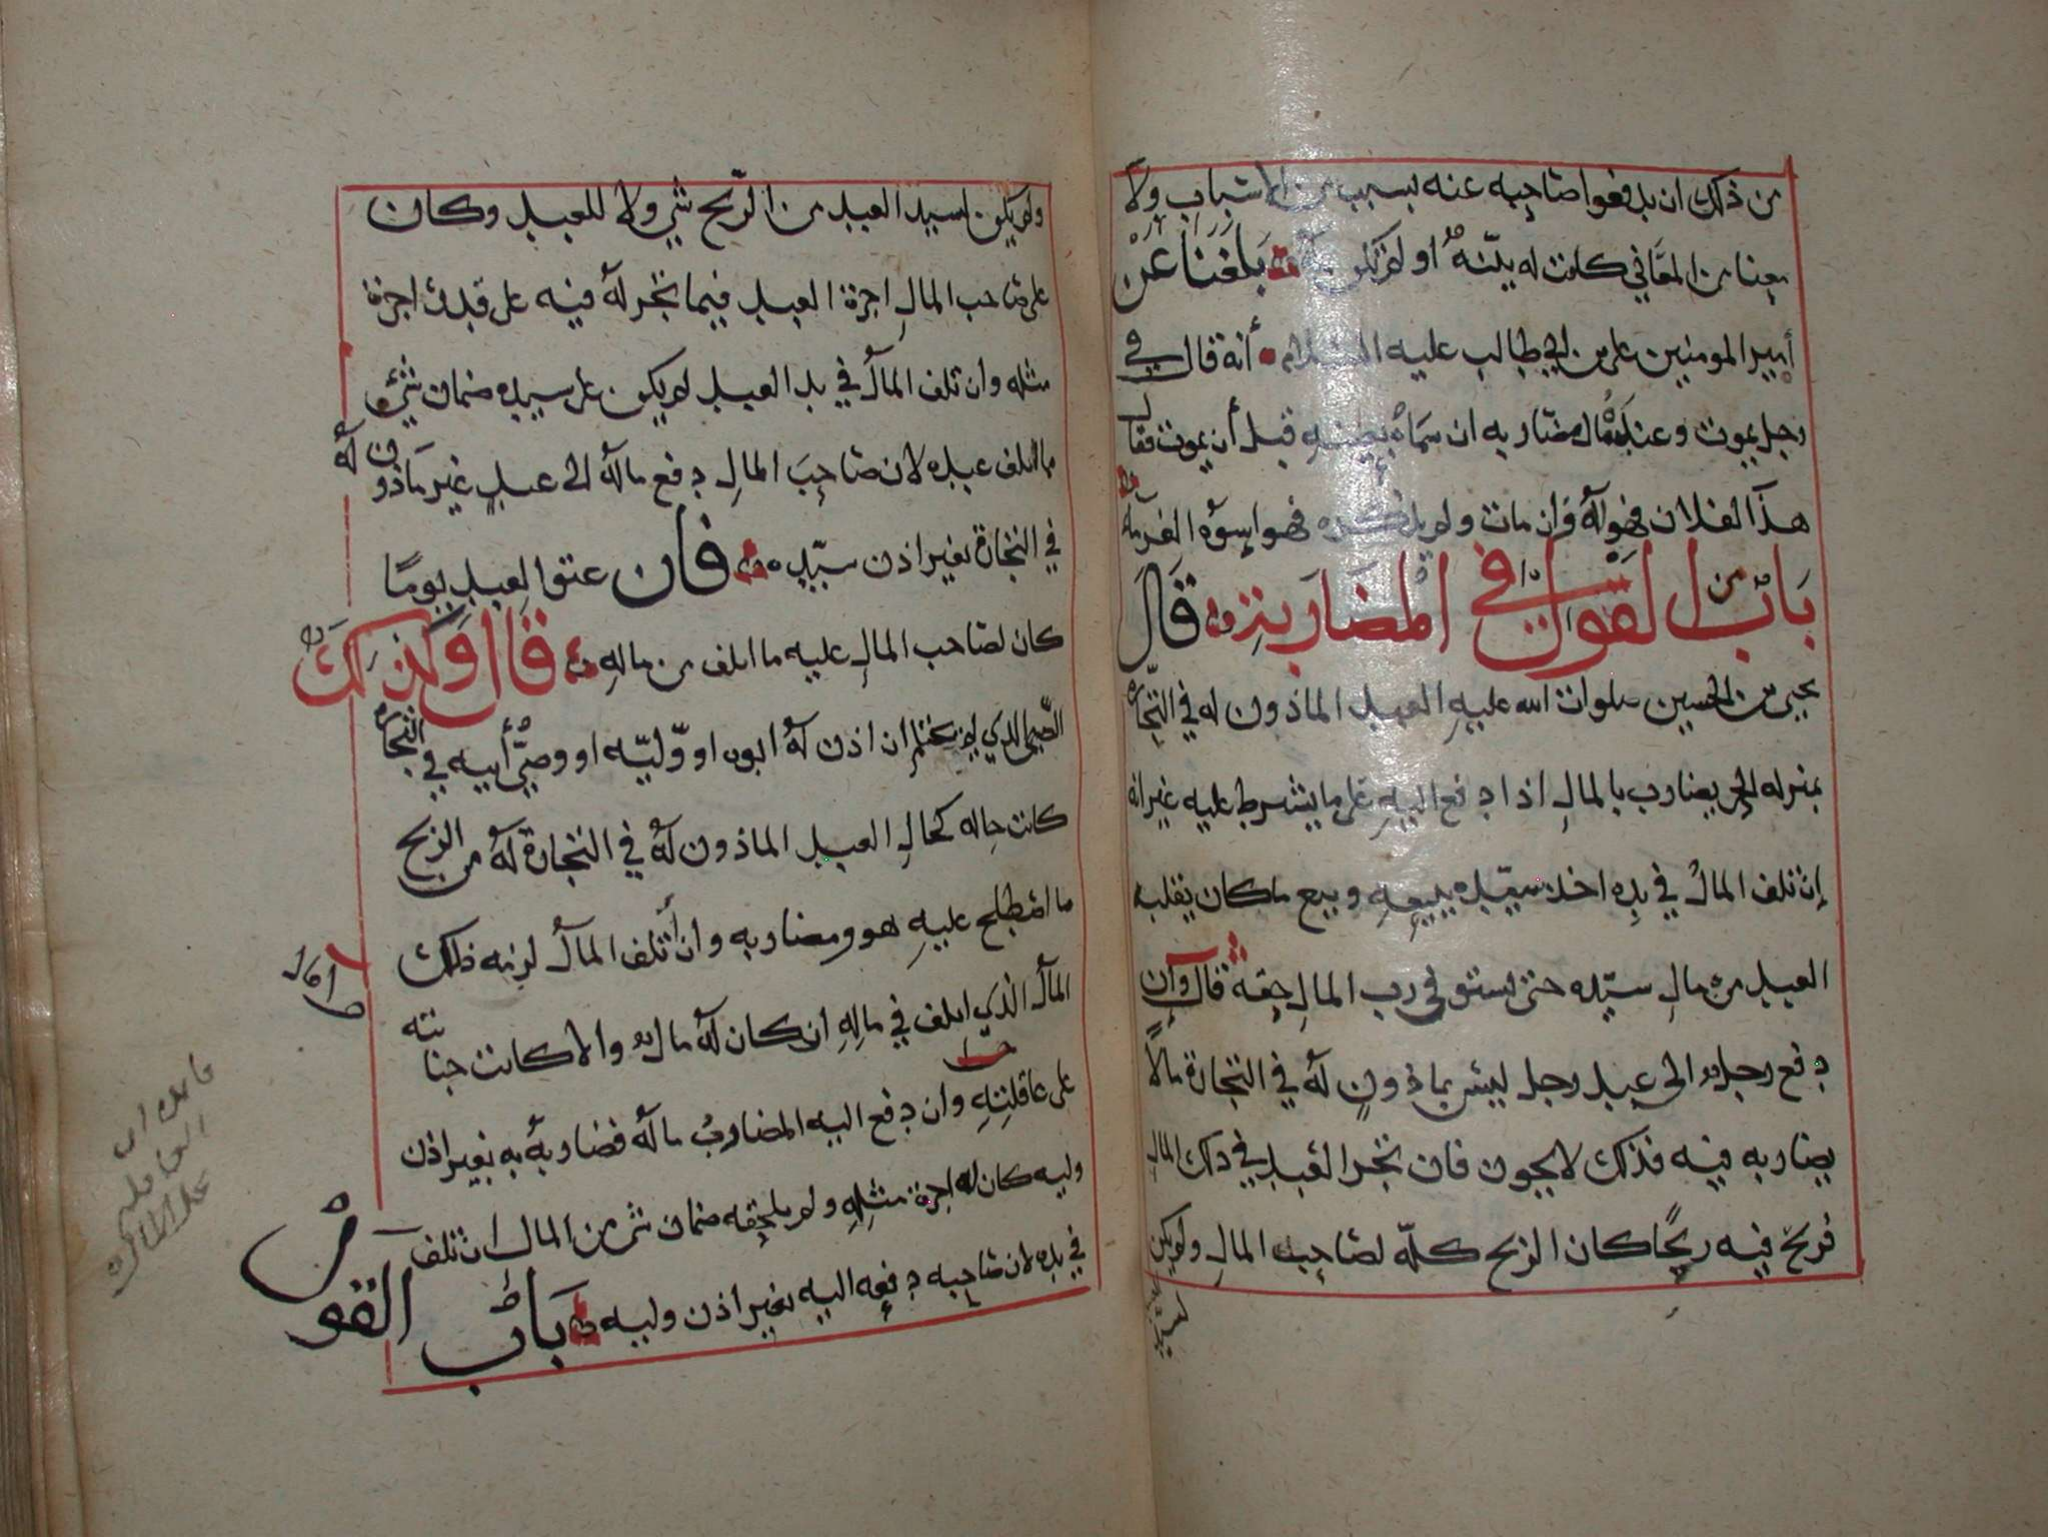 من ذلك ان يدفعوا صاحبه عنه بسبب من الاسباب ولا
بمعنا من المعاني كانت له بينة او لم تكن له بلغنا عن
أمير المومنين علي بن ابي طالب عليه السلام أنه قال في
رجل يموت وعنده مال مضاربه ان سماه بعينه قبل أن يموت فقال
هذا لفلان فهو له وان مات ولم يذكره فهو اسوه الغرما
باب من القول في المضاربة قال
يحيى بن الحسين صلوات الله عليه العبد الماذون له في التجاره
بمنزله الحر يضارب بالمال اذا دفع اليه على ما يشرط عليه غير انه
إن تلف المال في يده اخذ سيده ببيعه وبيع ما كان يقلبه
العبد من مال سيده حتى يستوفي رب المال حقه قال وان
دفع رجل الى عبد رجل ليس بماذون له في التجارة مالا
يضاربه فيه فذلك لا يجوز فان تجر العبد في ذلك المال
فربح فيه ربحا كان الربح كله لصاحب المال ولم يكن
ولم يكن لسيد العبد من الربح شي ولا للعبد وكان
على صاحب المال اجرة العبد فيما تجر له فيه على قدر اجرة
مثله وان تلف المال في يد العبد لم يكن على سيده ضمان شي
مما اتلف عبده لان صاحب المال دفع ماله الى عبد غير ماذون له
في التجارة بغير اذن سيده فان عتق العبد يوما
كان لصاحب المال عليه ما اتلف من ماله قال وكذلك
الصبي الذي لم يحتلم ان اذن له ابوه او وليه او وصي أبيه في التجاره
كانت حاله كحال العبد الماذون له في التجارة له من الربح
ما اصطلح عليه هو ومضاربه وان أتلف المال لزمه ذلك
المال الذي اتلف في ماله ان كان له مال والا كانت جنايته
على عاقلته وان دفع اليه المضارب ماله فضاربه به بغير اذن
وليه كان له اجرة مثله ولم يلحقه ضمان شي من المال ان تلف
في يده لان صاحبه دفعه اليه بغير اذن وليه باب القول